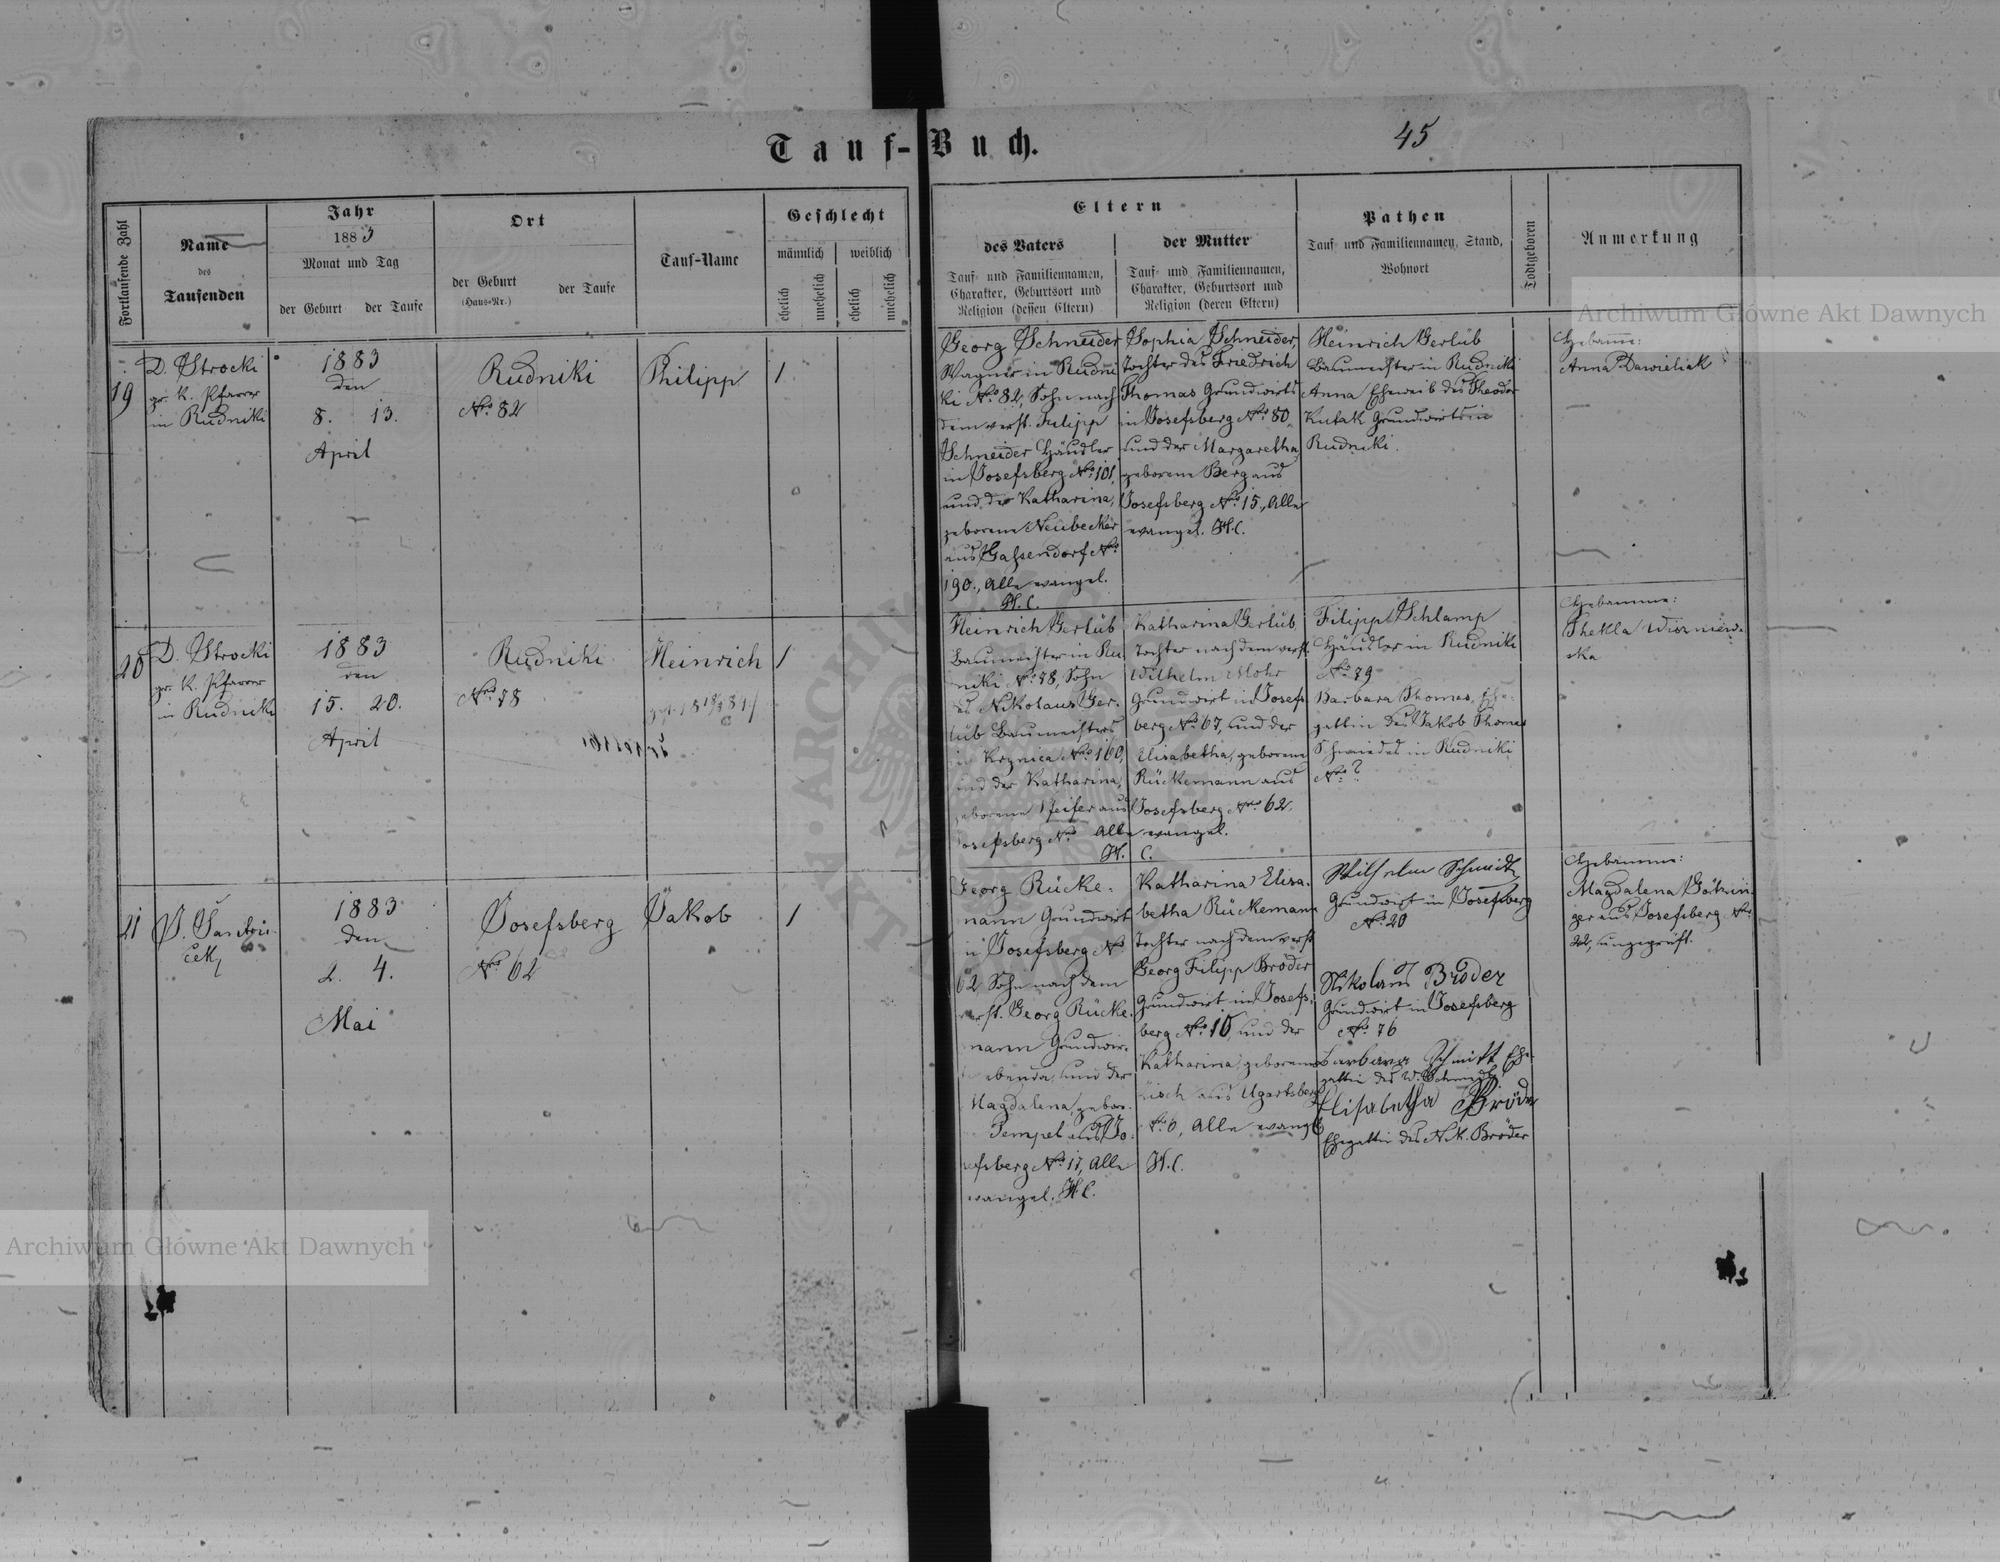 Tauf-Buch.
45
Fortlaufende Zahl
Name
des
Taufenden
Jahr
1883
Monat und Tag
der Geburt
der Taufe
Ort
der Geburt
(Haus-Nr.)
der Taufe
Tauf-Name
Geschlecht
männlich
weiblich
ehelich
unehelich
ehelich
unehelich
Eltern
des Vaters
Tauf- und Familiennamen,
Charakter, Geburtsort und
Religion (dessen Eltern)
der Mutter
Tauf- und Familiennamen,
Charakter, Geburtsort und
Religion (deren Eltern)
Pathen
Tauf- und Familiennamen, Stand,
Wohnort
Todtgeboren
Anmerkung
19
D. Strocki
gr. K. Pfarrer
in Rudniki
1883
den
8. 13.
April
Rudniki
Nro 82
Philipp
1
Georg Schneider
Wagner in Rudni
ki Nro 82, Sohn nach
dem verst. Filipp
Schneider Häusler
in Josefsberg Nro 101,
und der Katharina,
geborene Neubecker
aus Gassendorf Nro
190., Alle evangel.
H. C.
Sophia Schneider,
Tochter des Friedrich
Thomas Grundwirts
in Josefsberg Nro 80,
und der Margaretha,
geborene Berg aus
Josefsberg Nro 15., Alle
evangel. H.C.
Heinrich Gerlüb
Baumeister in Rudniki
Anna Eheweib des Theodor
Kutak Grundwirts in
Rudniki.
Hebamme:
Anna Dawieliak
20
D. Strocki
gr. K. Pfarrer
in Rudniki
1883
den
15. 20.
April
Rudniki
Nro 78
Heinrich
1
Heinrich Gerlüb
Baumeister in Ru
niki Nro 78, Sohn
es Nikolaus Ger-
lüb Baumeisters
in Krznica Nro 160,
und der Katharina,
geborene Pfeifer aus
osefsberg Nro Alle
H.
Katharina Gerlüb,
Tochter nach dem verst.
Wilhelm Mohr
Grundwirt in Josefs
berg Nro 67, und der
Elisabetha, geborene
Rückemann aus
Josefsberg Nro 62.
evangel.
C.
Filipp Schlamp
Häusler in Rudniki
Nro 79
Barbara Thomas, Ehe-
gattin des Jakob Thomas
Schmiedes in Rudniki
Nro ?
Hebamme:
Thekla Wiszniew-
ska
21
1883
den
2. 4.
Mai
Josefsberg
Nro 62
Jakob
1
Georg Rücke-
mann Grundwirt
in Josefsberg Nro
62 Sohn nach dem
verst. Georg Rücke-
mann Grundwir-
ebenda, und der
Magdalena, gebor.
Tempel aus Jo-
sefsberg Nro 17, Alle
evangel. H.C.
Katharina Elisa-
betha Rückemann
Tochter nach dem verst
Georg Filipp Bröder
Grundwirt in Josefs-
berg Nro 10, und der
Katharina, geborene
aus Ugartsberg
Nro 6, Alle evangl
H.C.
Wilhelm Schmidt,
Grundwirt in Josefsberg
Nro 20
Nikolaus Bröder
Grundwirt in Josefsberg
Nro 76
Barbara Schmitt Ehe-
gattin des W. Schmidt
Elisabetha Bröder
Ehegattin des Nik. Bröder
Hebamme:
Magdalena
ger aus Josefsberg Nro
22, ungeprüft.
Archiwum Główne Akt Dawnych
Archiwum Główne Akt Dawnych